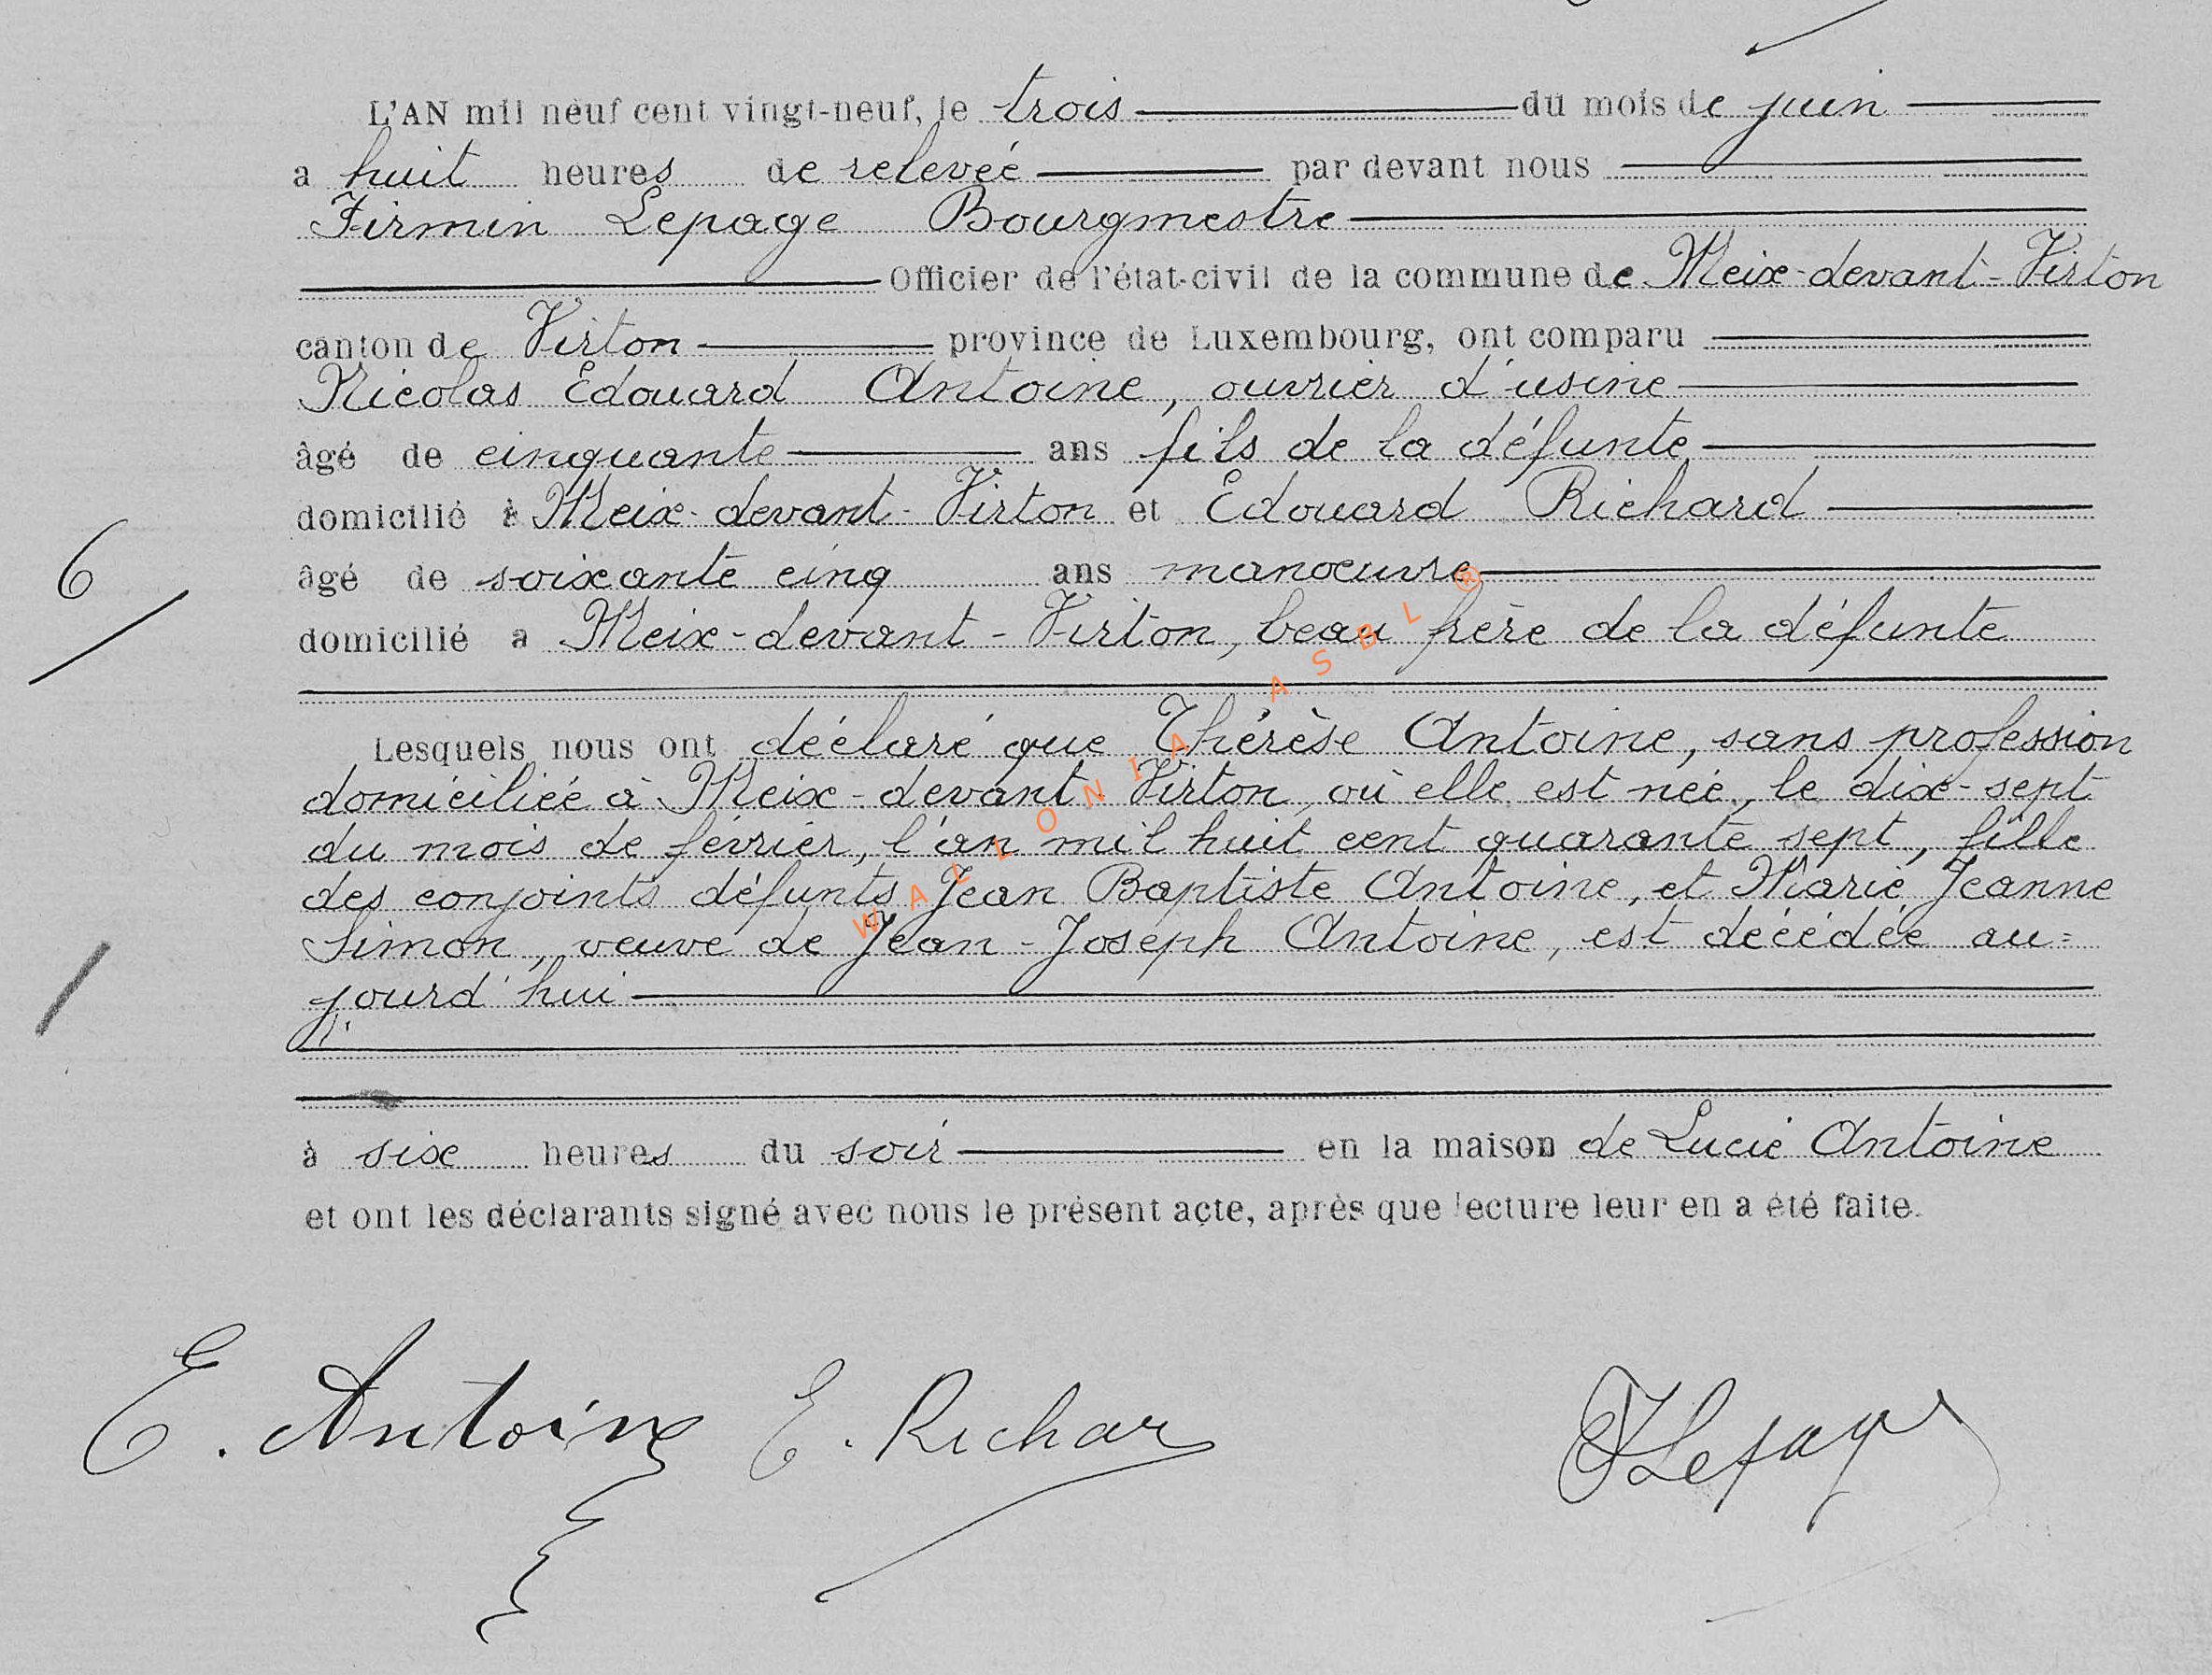 L'AN mil neuf cent vingt-neuf, le trois du mois de juin
a huit heures de relevée par devant nous
Firmin Lepage Bourgmestre
Officier de l'état-civil de la commune de Meix-devant-Virton
canton de Virton province de Luxembourg, ont comparu
Nicolas Edouard Antoine, ouvrier d'usine
âgé de cinquante ans fils de la défunte
domicilié à Meix-devant-Virton et Edouard Richard
6
âgé de soixante cinq ans manoeuvre
domicilié a Meix-devant-Virton, beau frère de la défunte
Lesquels nous ont déclaré que Thérèse Antoine, sans profession
domiciliée à Meix-devant-Virton, où elle est née, le dix-sept
du mois de février, l'an mil huit cent quarante sept, fille
des conjoints défunts Jean Baptiste Antoine, et Marie Jeanne
Simon, veuve de Jean-Joseph Antoine, est décédée au=
jourd'hui
à six heures du soir en la maison de Lucie Antoine
et ont les déclarants signé avec nous le présent acte, après que lecture leur en a été faite.
E. Antoine E. Richar FLepage
WALLONIA ASBL ®